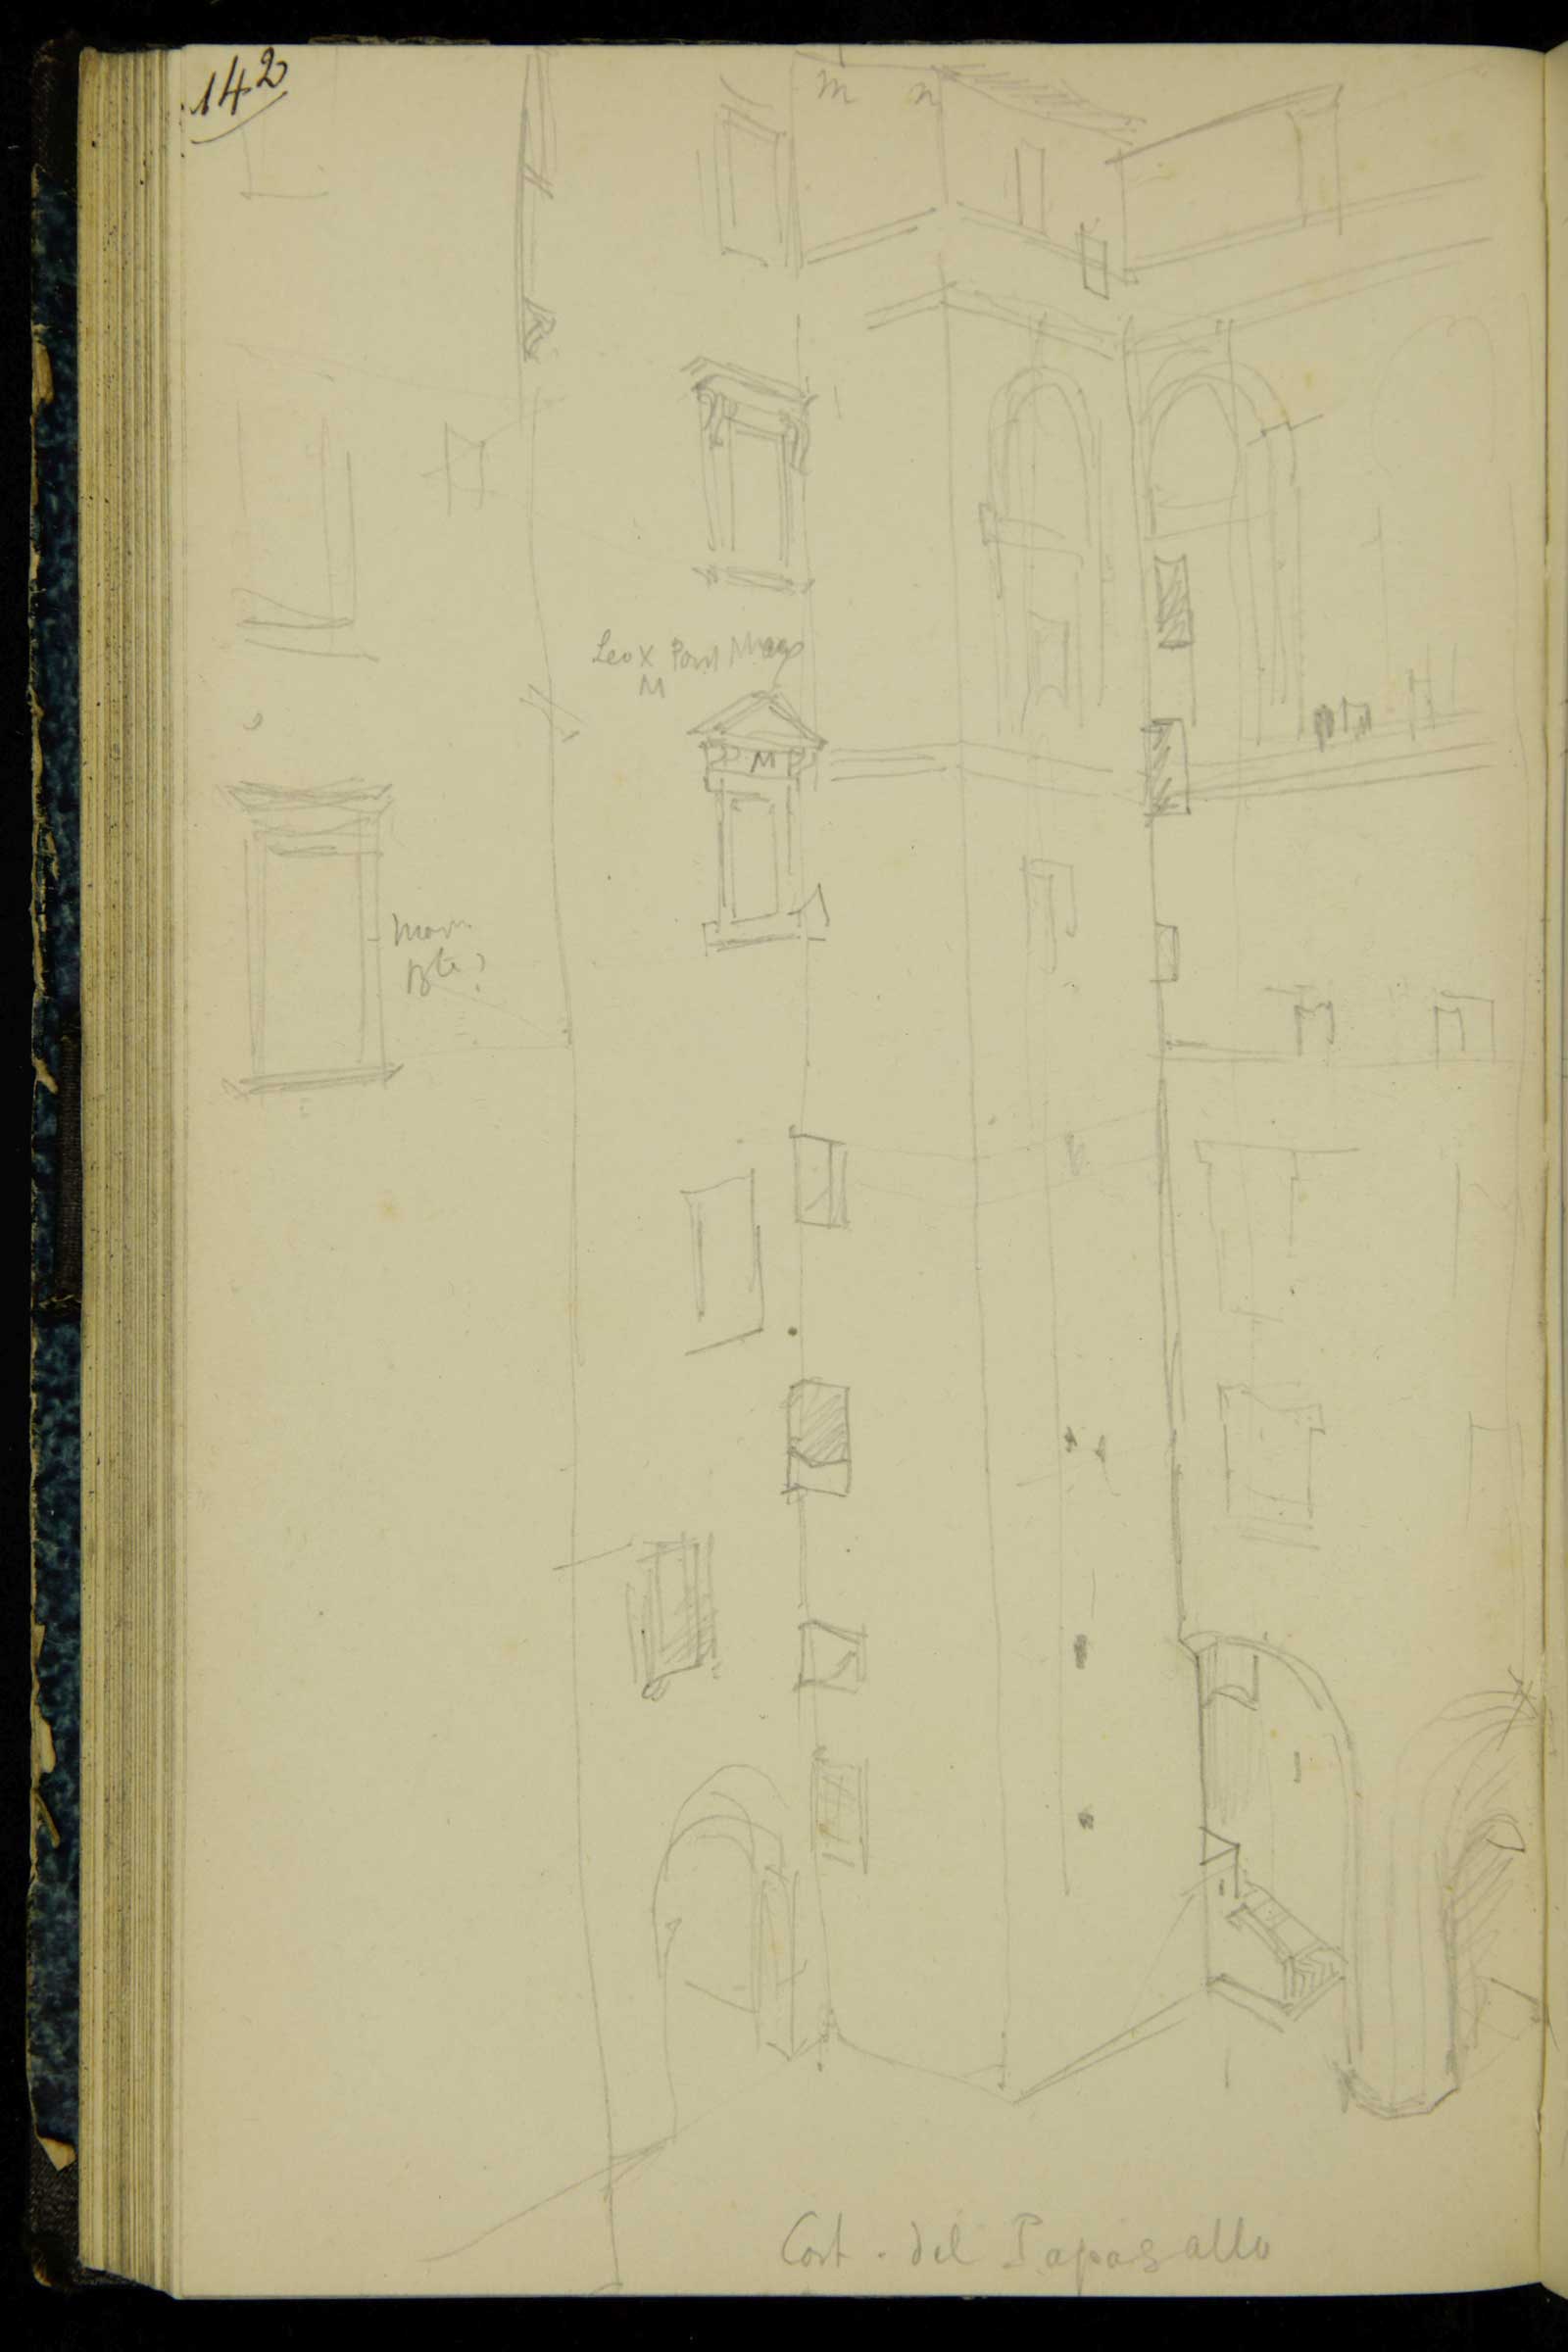 142
m n
Leo X Pont Max
M
P M P
Cort. del Papagallo